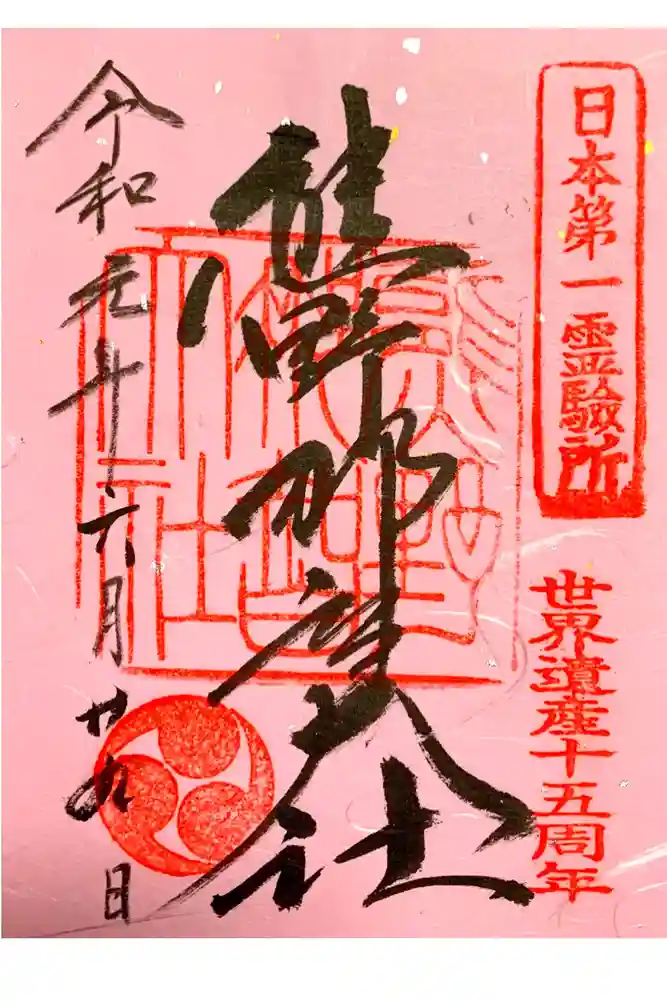 日本第一霊験所
世界遺産十五周年
熊野那智大社
熊野
那智
大社
令和元年六月廿九日